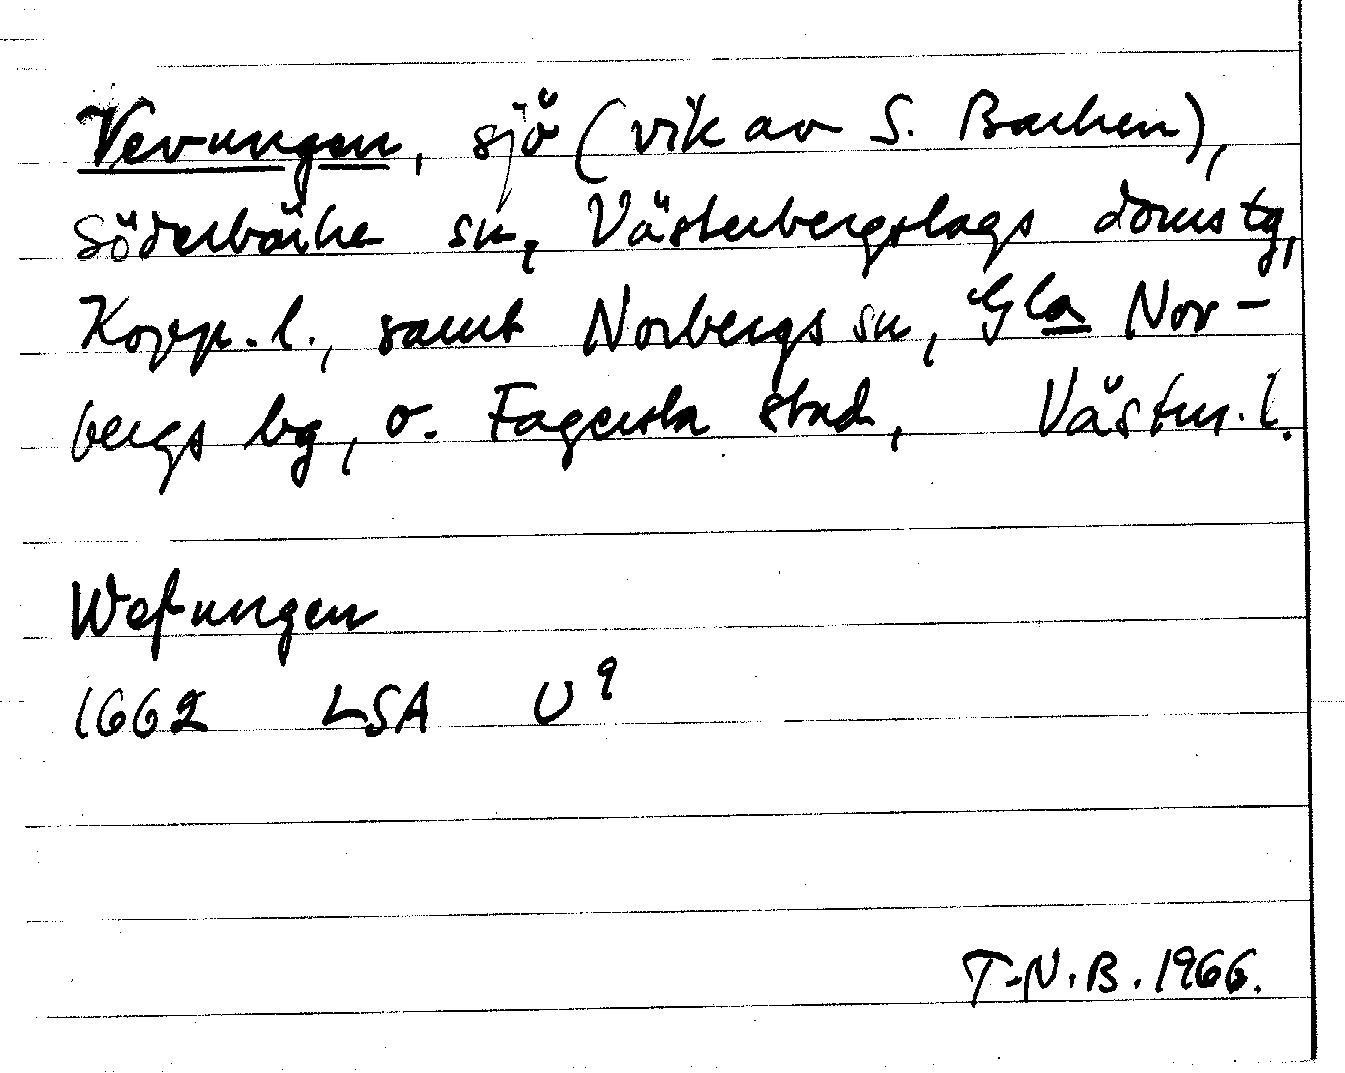 Vevungen, sjö (vik av S. Barken),
Söderbärke sn, Västerbergslags domstg,
Kopp. l., samt Norbergs sn, Gla Nor-
bergs bg, o. Fagersta stad, Västm. l.
Wefungen
1662 LSA U⁹
T-N.B. 1966.